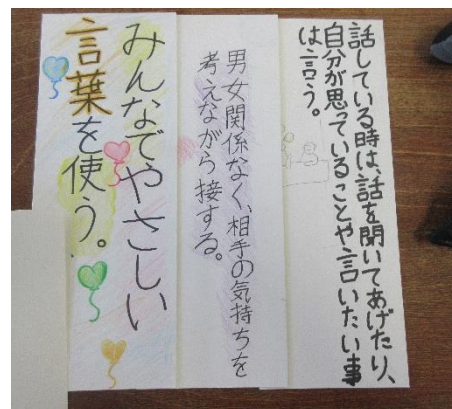 話している時は、話を聞いてあげたり、
自分が思っていることや言いたい事
は言う。
男女関係なく、相手の気持ちを
考えながら接する。
みんなでやさしい
言葉を使う。